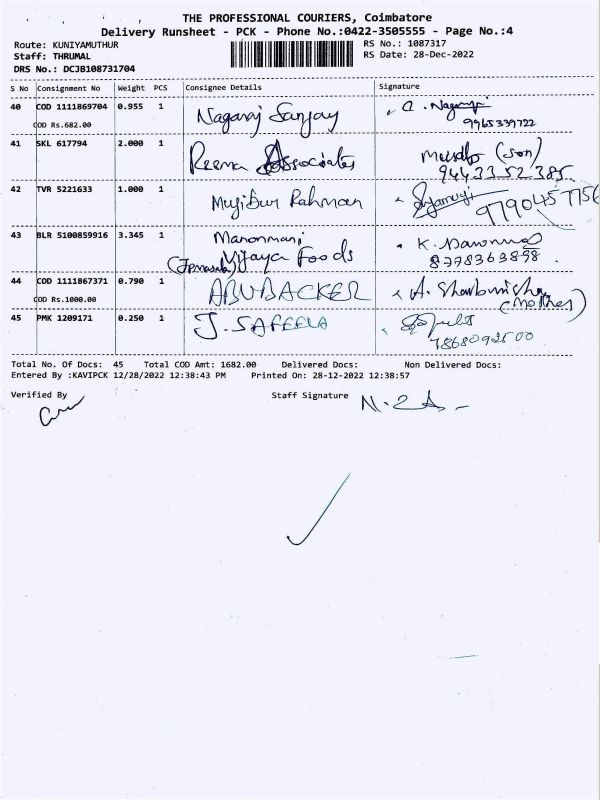 THE PROFESSIONAL COURIERS, Coimbatore
Delivery Runsheet - PCK - Phone No.:0422-3505555 - Page No.:4
Route: KUNIYAMUTHUR
RS No.: 1087317
Staff: THRUMAL
RS Date: 28-Dec-2022
DRS No.: DCJB108731704
S No Consignment No Weight PCS Consignee Details Signature
40 COD 1111869704 0.955 1 Nagaraj Sanjay
COD Rs.682.00 9965339722
41 SKL 617794 2.000 1 Reema Associates (Son)
9443352385
42 TVR 5221633 1.000 1 Mujibur Rahman
9790457756
43 BLR 5100859916 3.345 1 Manonmani
Vijaya Foods
8378363898
44 COD 1111867371 0.790 1 ABUBACKER
COD Rs.1000.00 (Mother)
45 PMK 1209171 0.250 1 J. SAFEELA
7868092500
Total No. Of Docs: 45 Total COD Amt: 1682.00 Delivered Docs: Non Delivered Docs:
Entered By :KAVIPCK 12/28/2022 12:38:43 PM Printed On: 28-12-2022 12:38:57
Verified By Staff Signature